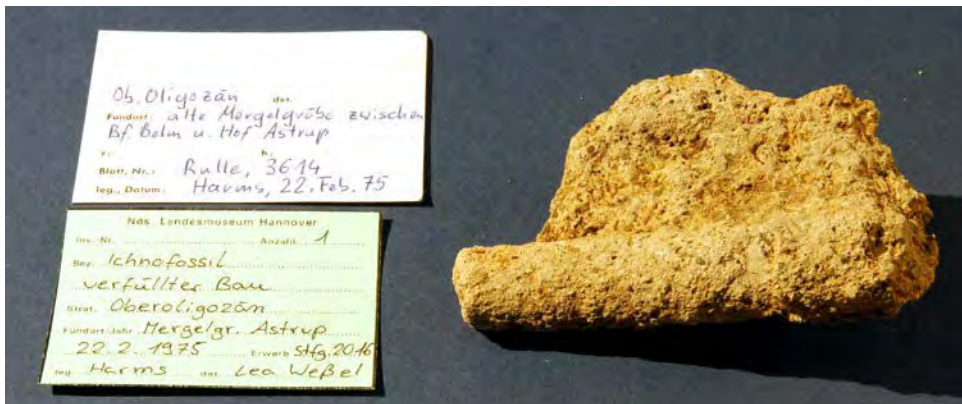 Ob. Oligozän det.
Fundort: alte Mergelgrube zwischen
Bf. Belm u. Hof Astrup
r: h:
Blatt, Nr.: Rulle, 3614
leg., Datum: Harms, 22. Feb. 75
Nds. Landesmuseum Hannover
Inv.-Nr. Anzahl 1
Bez. Ichnofossil
verfüllter Bau
Strat. Oberoligozän
Fundort/Jahr Mergelgr. Astrup
22.2.1975 Erwerb Stfg. 2016
leg. Harms det. Lea Weßel